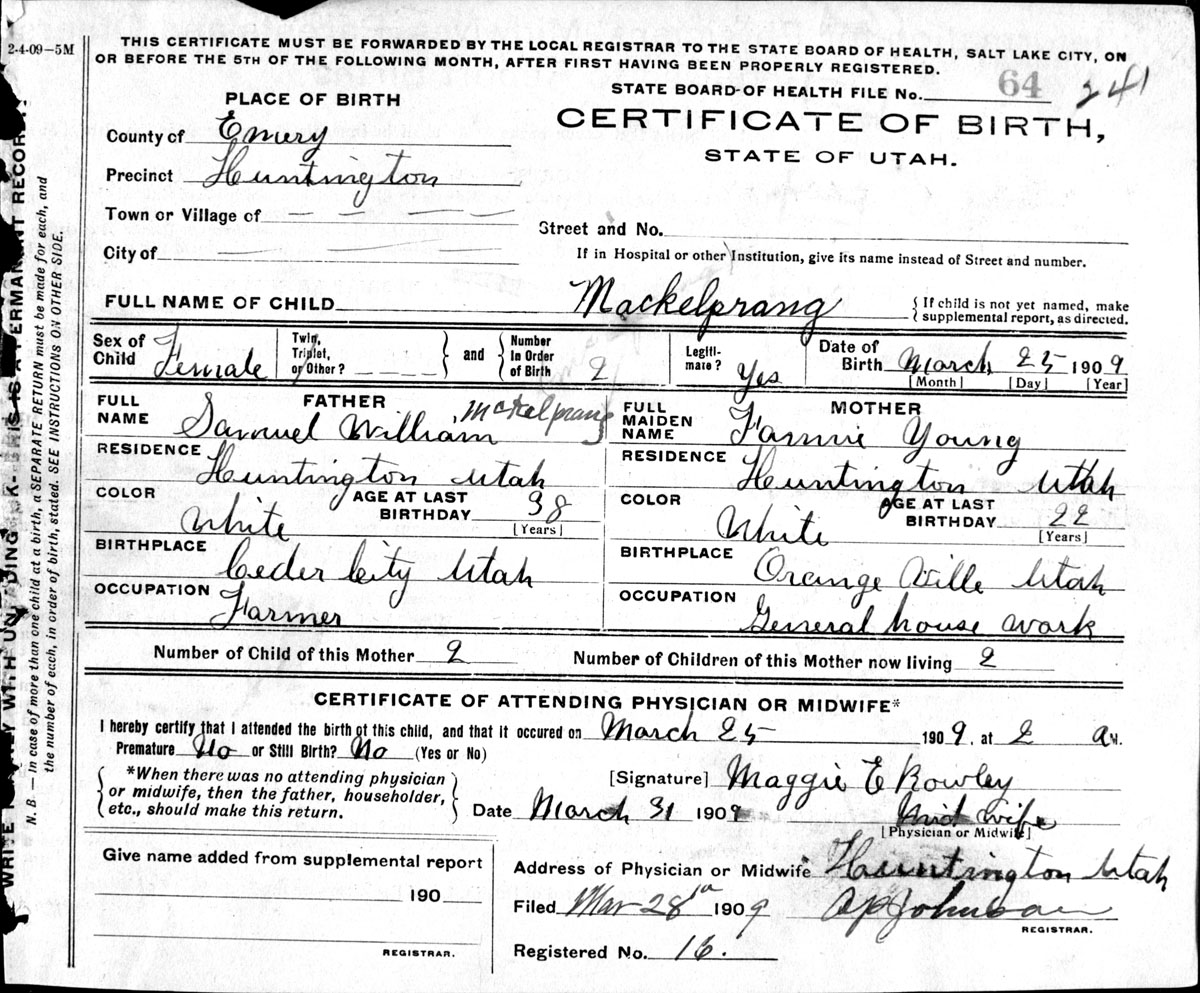 2-4-09-5M
THIS CERTIFICATE MUST BE FORWARDED BY THE LOCAL REGISTRAR TO THE STATE BOARD OF HEALTH, SALT LAKE CITY, ON
OR BEFORE THE 5TH OF THE FOLLOWING MONTH, AFTER FIRST HAVING BEEN PROPERLY REGISTERED.
STATE BOARD OF HEALTH FILE No. 64 241
PLACE OF BIRTH
CERTIFICATE OF BIRTH,
STATE OF UTAH.
County of Emery
Precinct Huntington
Town or Village of — — — —
City of — — —
Street and No.
If in Hospital or other Institution, give its name instead of Street and number.
FULL NAME OF CHILD Mackelprang { If child is not yet named, make
supplemental report, as directed.
Sex of Child Female
Twin, Triplet, or Other? - - - - } and { Number In Order of Birth 2
Legitimate? Yes
Date of Birth March 25 1909
[Month] [Day] [Year]
FATHER
FULL NAME Samuel William Mackelprang
RESIDENCE Huntington Utah
COLOR White
AGE AT LAST BIRTHDAY 38
[Years]
BIRTHPLACE Ceder City Utah
OCCUPATION Farmer
MOTHER
FULL MAIDEN NAME Fannie Young
RESIDENCE Huntington Utah
COLOR White
AGE AT LAST BIRTHDAY 22
[Years]
BIRTHPLACE Orange Ville Utah
OCCUPATION General house work
Number of Child of this Mother 2 Number of Children of this Mother now living 2
CERTIFICATE OF ATTENDING PHYSICIAN OR MIDWIFE*
I hereby certify that I attended the birth of this child, and that it occured on March 25 1909, at 2 A M.
Premature No or Still Birth? No (Yes or No)
{ *When there was no attending physician
or midwife, then the father, householder,
etc., should make this return. }
[Signature] Maggie E Rowley
Date March 31 1909 Mid wife
[Physician or Midwife]
Give name added from supplemental report
190
REGISTRAR.
Address of Physician or Midwife Huntington Utah
Filed Mar 28 1909 Johnson
REGISTRAR.
Registered No. 16.
N. B. — In case of more than one child at a birth, a SEPARATE RETURN must be made for each, and
the number of each, in order of birth, stated. SEE INSTRUCTIONS ON OTHER SIDE.